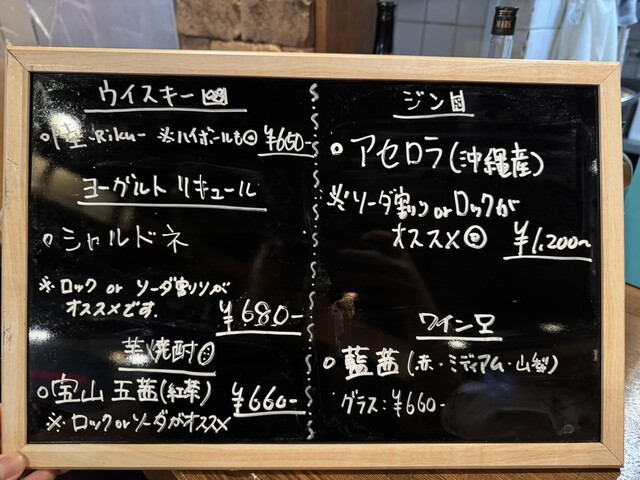 ウイスキー
○陸 -Riku- ※ハイボールも ¥660-
ヨーグルト リキュール
○シャルドネ
※ロック or ソーダ割りが
オススメです.
¥680-
芋焼酎
○宝山 玉茜(紅茶) ¥660-
※ロック or ソーダがオススメ
ジン
○アセロラ(沖縄産)
※ソーダ割り or ロックが
オススメ ¥1,200~
ワイン
○藍茜(赤・ミディアム・山梨)
グラス:¥660-
MARS